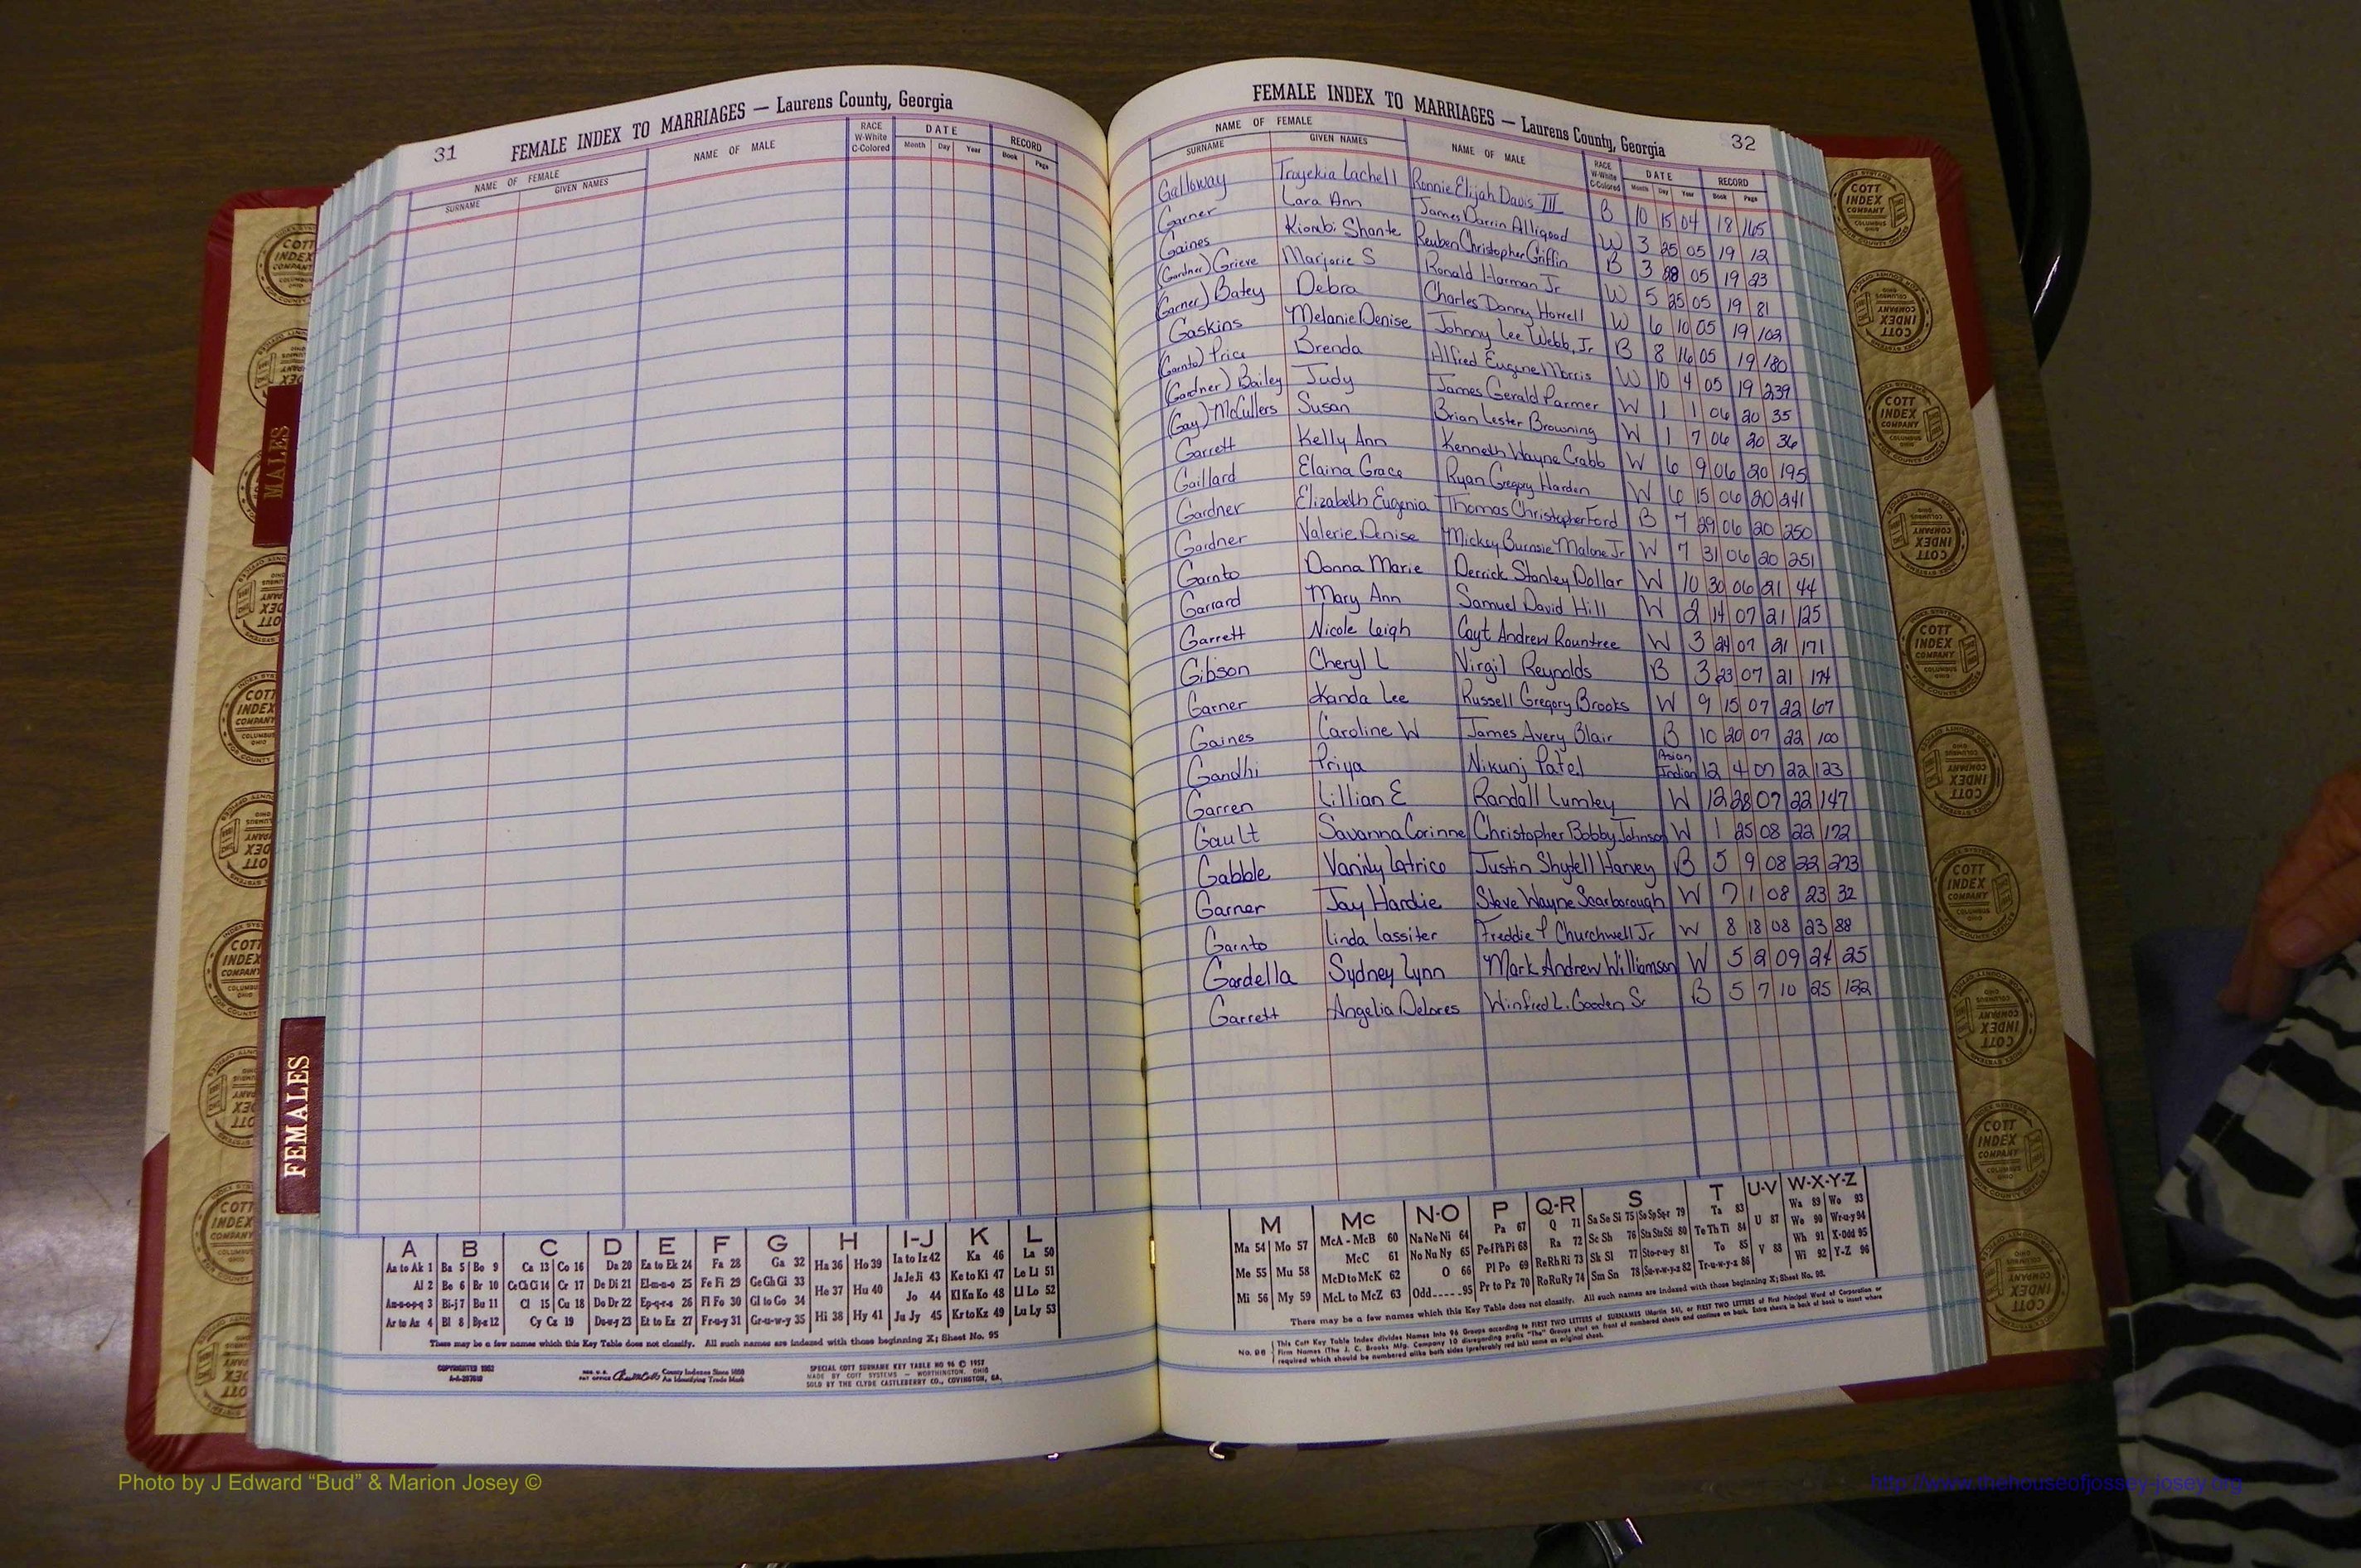 31 FEMALE INDEX TO MARRIAGES — Laurens County, Georgia
NAME OF FEMALE NAME OF MALE RACE W-White C-Colored DATE RECORD
SURNAME GIVEN NAMES Month Day Year Book Page
MALES
FEMALES
A B C D E F G H I-J K L
Aa to Ak 1 Ba 5 Bo 9 Ca 13 Co 16 Da 20 Ea to Ek 24 Fa 28 Ga 32 Ha 36 Ho 39 Ia to Iz 42 Ka 46 La 50
Al 2 Be 6 Br 10 Ce Ch Ci 14 Cr 17 De Di 21 El-m-n-o 25 Fe Fi 29 Ge Gh Gi 33 He 37 Hu 40 Ja Je Ji 43 Ke to Ki 47 Le Li 51
Am-n-o-p-q 3 Bi-j 7 Bu 11 Cl 15 Cu 18 Do Dr 22 Ep-q-r-s 26 Fl Fo 30 Gl to Go 34 Jo 44 Kl Kn Ko 48 Ll Lo 52
Ar to Az 4 Bl 8 By-z 12 Cy Cz 19 Du-w-y 23 Et to Ez 27 Fr-u-y 31 Gr-u-w-y 35 Hi 38 Hy 41 Ju Jy 45 Kr to Kz 49 Lu Ly 53
There may be a few names which this Key Table does not classify. All such names are indexed with those beginning X; Sheet No. 95
County Indexes Since 1888
An Identifying Trade Mark
SPECIAL COTT SURNAME KEY TABLE NO 96 © 1957
MADE BY COTT SYSTEMS — WORTHINGTON, OHIO
SOLD BY THE CLYDE CASTLEBERRY CO., COVINGTON, GA.
FEMALE INDEX TO MARRIAGES — Laurens County, Georgia 32
NAME OF FEMALE NAME OF MALE RACE W-White C-Colored DATE RECORD
SURNAME GIVEN NAMES Month Day Year Book Page
Galloway Trayekia Lachell Ronnie Elijah Davis III B 10 15 04 18 165
Garner Lara Ann James Darrin Alligood W 3 25 05 19 12
Gaines Kiombi Shante Reuben Christopher Griffin B 3 28 05 19 23
(Gardner) Grieve Marjorie S Ronald Harman Jr W 5 25 05 19 81
(Garner) Batey Debra Charles Danny Horrell W 6 10 05 19 102
Gaskins Melanie Denise Johnny Lee Webb, Jr B 8 16 05 19 180
(Garnto) Price Brenda Alfred Eugene Morris W 10 4 05 19 239
(Gardner) Bailey Judy James Gerald Parmer W 1 1 06 20 35
(Gay) McCullers Susan Brian Lester Browning W 1 7 06 20 36
Garrett Kelly Ann Kenneth Wayne Crabb W 6 9 06 20 195
Gaillard Elaina Grace Ryan Gregory Harden W 6 15 06 20 241
Gardner Elizabeth Eugenia Thomas Christopher Ford B 7 29 06 20 250
Gardner Valerie Denise Mickey Burnsie Malone Jr W 7 31 06 20 251
Garnto Donna Marie Derrick Stanley Dollar W 10 30 06 21 44
Garrard Mary Ann Samuel David Hill W 2 14 07 21 125
Garrett Nicole Leigh Coyt Andrew Rountree W 3 24 07 21 171
Gibson Cheryl L Virgil Reynolds B 3 23 07 21 174
Garner Kanda Lee Russell Gregory Brooks W 9 15 07 22 67
Gaines Caroline W James Avery Blair B 10 20 07 22 100
Gandhi Priya Nikunj Patel Asian Indian 12 4 07 22 123
Garren Lillian E Randall Lumley W 12 28 07 22 147
Gault Savanna Corinne Christopher Bobby Johnson W 1 25 08 22 172
Gabble Vanity Latrice Justin Shytell Harvey B 5 9 08 22 273
Garner Jay Hardie Steve Wayne Scarborough W 7 1 08 23 32
Garnto Linda Lassiter Freddie P Churchwell Jr W 8 18 08 23 88
Gardella Sydney Lynn Mark Andrew Williamson W 5 2 09 24 25
Garrett Angelia Delores Winfred L. Gooden Sr B 5 7 10 25 122
M Mc N-O P Q-R S T U-V W-X-Y-Z
Ma 54 Mo 57 McA - McB 60 Na Ne Ni 64 Pa 67 Q 71 Sa Se Si 75 So Sp Sq-r 79 Ta 83 U 87 Wa 89 Wo 93
Me 55 Mu 58 McC 61 No Nu Ny 65 Pe-f Ph Pi 68 Ra 72 Sc Sh 76 Sta Ste Sti 80 Te Th Ti 84 We 90 Wr-u-y 94
McD to McK 62 O 66 Pl Po 69 Re Rh Ri 73 Sk Sl 77 Sto-r-u-y 81 To 85 V 88 Wh 91 X-Odd 95
Mi 56 My 59 McL to McZ 63 Odd-----95 Pr to Pz 70 Ro Ru Ry 74 Sm Sn 78 Su-v-w-y-z 82 Tr-u-w-y-z 86 Wi 92 Y-Z 96
There may be a few names which this Key Table does not classify. All such names are indexed with those beginning X; Sheet No. 95.
No. 96 This Cott Key Table Index divides Names into 96 Groups according to FIRST TWO LETTERS of SURNAMES (Martin 54), or FIRST TWO LETTERS of First Principal Word of Corporation or
Firm Names (The J. C. Brooks Mfg. Company 10 disregarding prefix "The" Groups start on front of numbered sheets and continue on back. Extra sheets in back of book to insert where
required which should be numbered alike both sides (preferably red ink) same as original sheet.
INDEX SYSTEMS
COTT INDEX COMPANY
COLUMBUS OHIO
FOR COUNTY OFFICES
Photo by J Edward “Bud” & Marion Josey ©
http://www.thehouseofjossey-josey.org